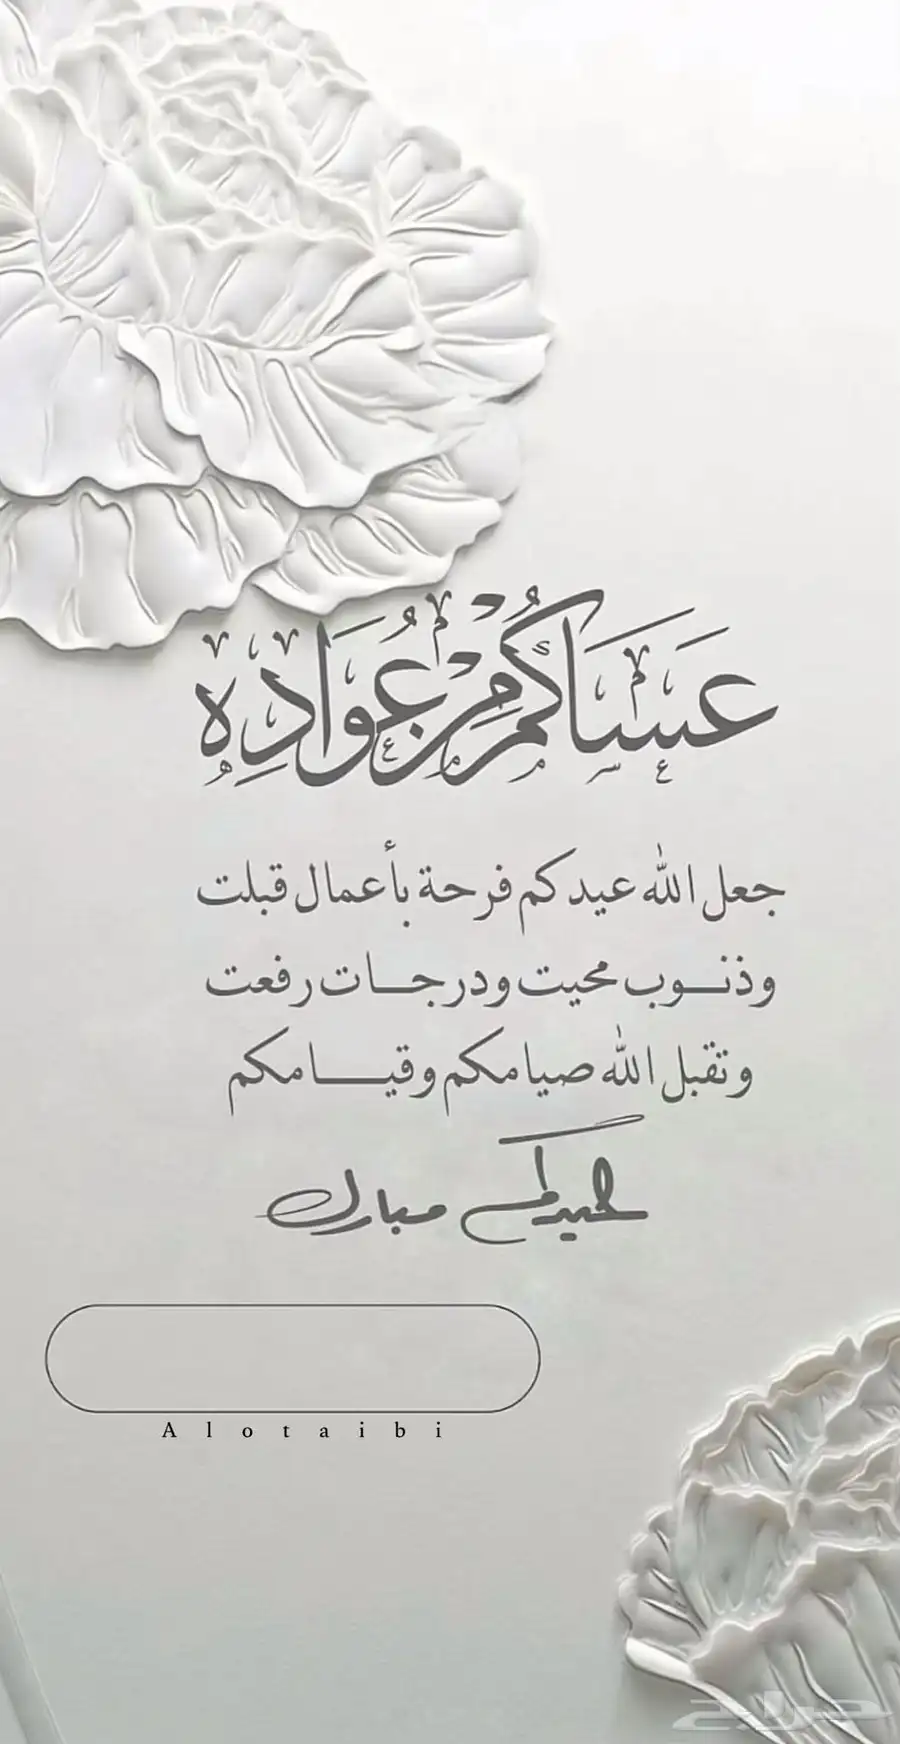 عَسَاكُم مِن عُوَادِه
جعل الله عيدكم فرحة بأعمال قبلت
وذنوب محيت ودرجات رفعت
وتقبل الله صيامكم وقيامكم
عيدكم مبارك
Alotaibi
حراج